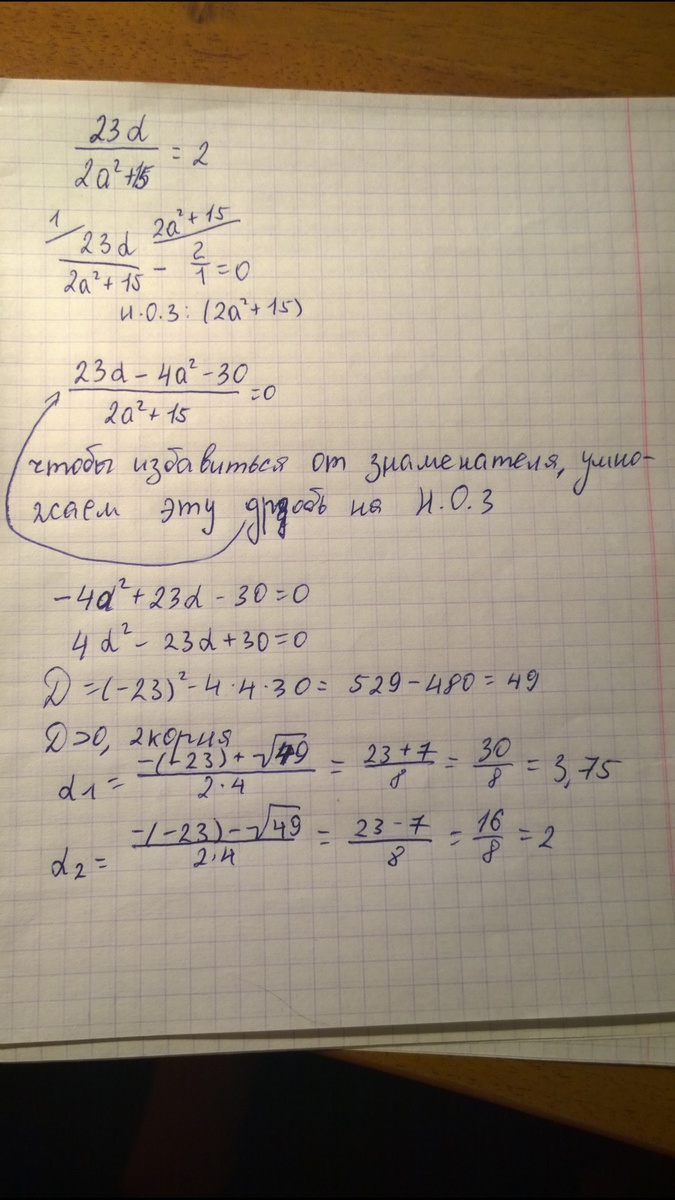 23a / 2a²+15 = 2
1 2a²+15
23a / 2a²+15 - 2/1 = 0
Н.О.З: (2a²+15)
23a - 4a² - 30 / 2a²+15 = 0
чтобы избавиться от знаменателя, умно-
жаем эту дробь на Н.О.З
-4a²+23a-30=0
4a²-23a+30=0
D=(-23)²-4·4·30= 529-480=49
D>0, 2 корня
a1= -(-23)+√49 / 2·4 = 23+7 / 8 = 30/8 = 3,75
a2= -(-23)-√49 / 2·4 = 23-7 / 8 = 16/8 = 2